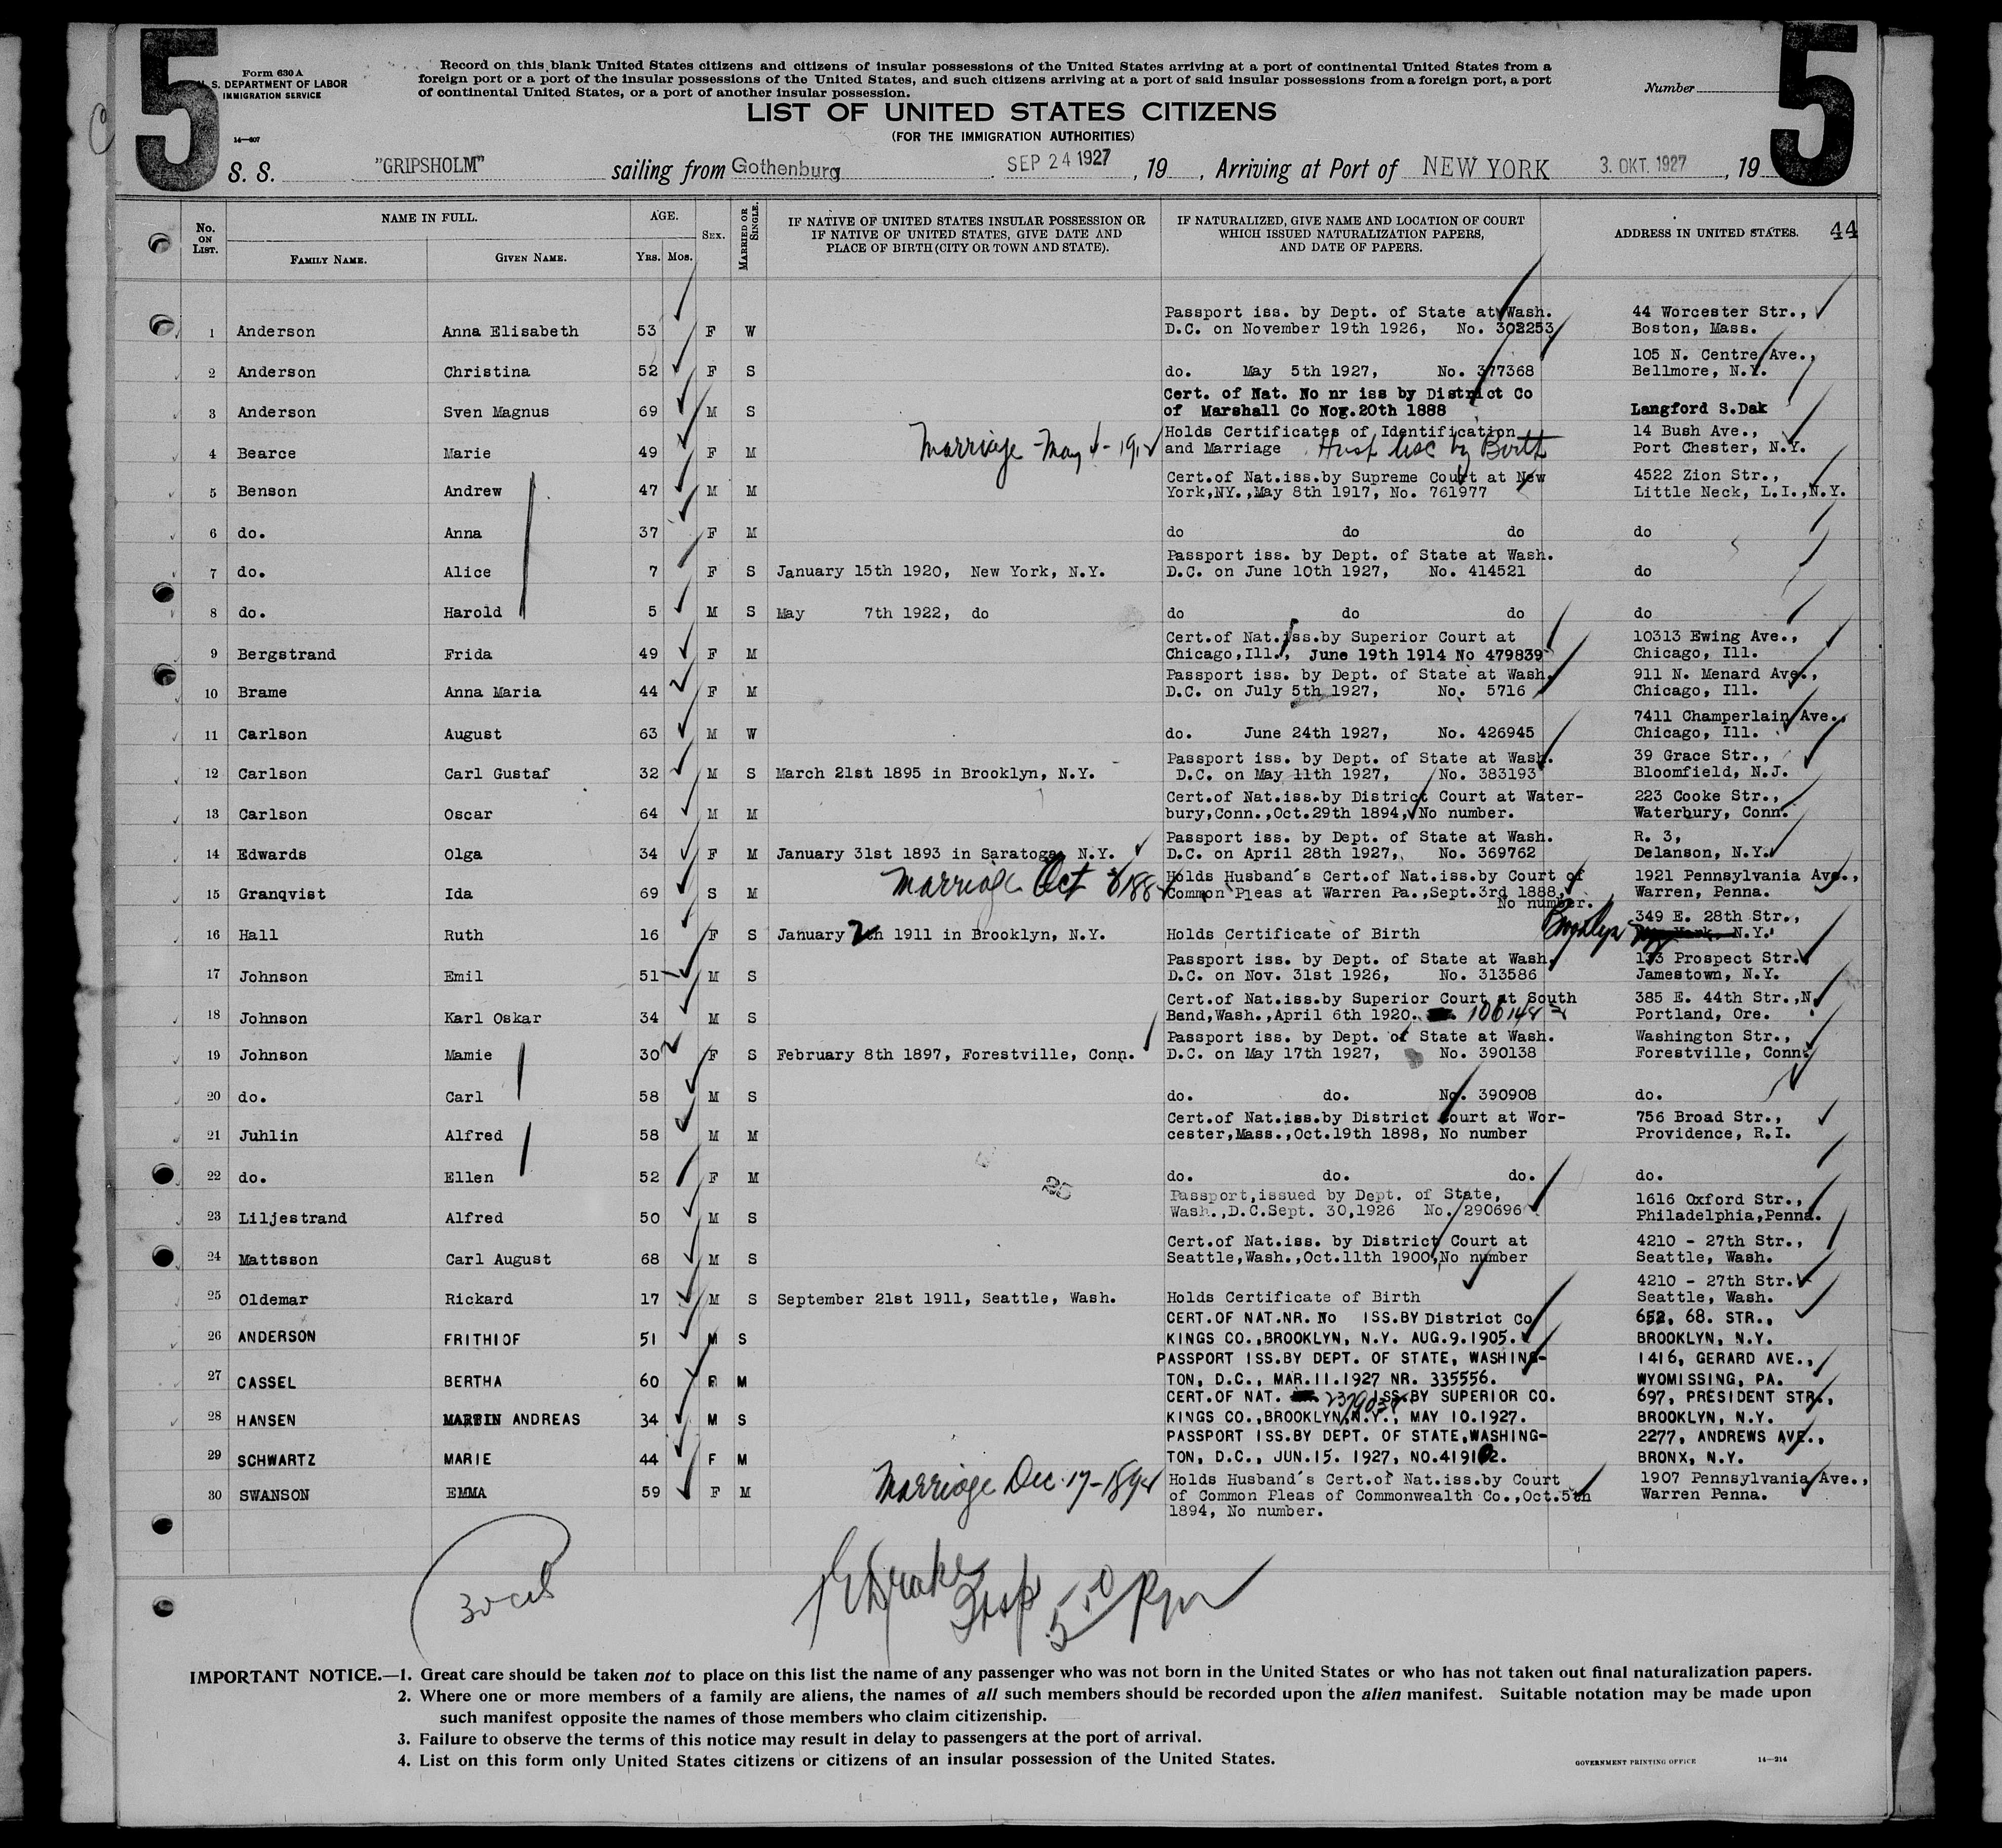 5
5
Form 630 A
S. DEPARTMENT OF LABOR
IMMIGRATION SERVICE
14—607
Record on this blank United States citizens and citizens of insular possessions of the United States arriving at a port of continental United States from a
foreign port or a port of the insular possessions of the United States, and such citizens arriving at a port of said insular possessions from a foreign port, a port
of continental United States, or a port of another insular possession.
Number
LIST OF UNITED STATES CITIZENS
(FOR THE IMMIGRATION AUTHORITIES)
S. S. "GRIPSHOLM" sailing from Gothenburg SEP 24 1927, 19 , Arriving at Port of NEW YORK 3. OKT. 1927, 19
No. ON LIST.
NAME IN FULL.
FAMILY NAME.
GIVEN NAME.
AGE.
YRS. MOS.
SEX.
MARRIED OR SINGLE.
IF NATIVE OF UNITED STATES INSULAR POSSESSION OR
IF NATIVE OF UNITED STATES, GIVE DATE AND
PLACE OF BIRTH (CITY OR TOWN AND STATE).
IF NATURALIZED, GIVE NAME AND LOCATION OF COURT
WHICH ISSUED NATURALIZATION PAPERS,
AND DATE OF PAPERS.
ADDRESS IN UNITED STATES. 44
Passport iss. by Dept. of State at Wash. 44 Worcester Str.,
1 Anderson Anna Elisabeth 53 F W D.C. on November 19th 1926, No. 302253 Boston, Mass.
105 N. Centre Ave.,
2 Anderson Christina 52 F S do. May 5th 1927, No. 377368 Bellmore, N.Y.
Cert. of Nat. No nr iss by District Co
3 Anderson Sven Magnus 69 M S of Marshall Co Nov.20th 1888 Langford S.Dak
Holds Certificates of Identification 14 Bush Ave.,
4 Bearce Marie 49 F M Marriage May 4- and Marriage Husb usc by Birth Port Chester, N.Y.
Cert.of Nat.iss.by Supreme Court at New 4522 Zion Str.,
5 Benson Andrew 47 M M York,NY.,May 8th 1917, No. 761977 Little Neck, L.I.,N.Y.
6 do. Anna 37 F M do do do do
Passport iss. by Dept. of State at Wash.
7 do. Alice 7 F S January 15th 1920, New York, N.Y. D.C. on June 10th 1927, No. 414521 do
8 do. Harold 5 M S May 7th 1922, do do do do do
Cert.of Nat.iss.by Superior Court at 10313 Ewing Ave.,
9 Bergstrand Frida 49 F M Chicago,Ill., June 19th 1914 No 479839 Chicago, Ill.
Passport iss. by Dept. of State at Wash. 911 N. Menard Ave.,
10 Brame Anna Maria 44 F M D.C. on July 5th 1927, No. 5716 Chicago, Ill.
7411 Champerlain Ave.,
11 Carlson August 63 M W do. June 24th 1927, No. 426945 Chicago, Ill.
Passport iss. by Dept. of State at Wash. 39 Grace Str.,
12 Carlson Carl Gustaf 32 M S March 21st 1895 in Brooklyn, N.Y. D.C. on May 11th 1927, No. 383193 Bloomfield, N.J.
Cert.of Nat.iss.by District Court at Water- 223 Cooke Str.,
13 Carlson Oscar 64 M M bury,Conn.,Oct.29th 1894, No number. Waterbury, Conn.
Passport iss. by Dept. of State at Wash. R. 3,
14 Edwards Olga 34 F M January 31st 1893 in Saratoga, N.Y. D.C. on April 28th 1927, No. 369762 Delanson, N.Y.
Holds Husband's Cert.of Nat.iss.by Court of 1921 Pennsylvania Ave.,
15 Granqvist Ida 69 S M Marriage Oct Common Pleas at Warren Pa.,Sept.3rd 1888, Warren, Penna.
No number.
349 E. 28th Str.,
16 Hall Ruth 16 F S January 7th 1911 in Brooklyn, N.Y. Holds Certificate of Birth Brooklyn N.Y.
Passport iss. by Dept. of State at Wash. 133 Prospect Str.
17 Johnson Emil 51 M S D.C. on Nov. 31st 1926, No. 313586 Jamestown, N.Y.
Cert.of Nat.iss.by Superior Court at South 385 E. 44th Str.,N.
18 Johnson Karl Oskar 34 M S Band,Wash.,April 6th 1920. Portland, Ore.
Passport iss. by Dept. of State at Wash. Washington Str.,
19 Johnson Mamie 30 F S February 8th 1897, Forestville, Conn. D.C. on May 17th 1927, No. 390138 Forestville, Conn.
20 do. Carl 58 M S do. do. No. 390908 do.
Cert.of Nat.iss.by District Court at Wor- 756 Broad Str.,
21 Juhlin Alfred 58 M M cester,Mass.,Oct.19th 1898, No number Providence, R.I.
22 do. Ellen 52 F M do. do. do. do.
Passport,issued by Dept. of State, 1616 Oxford Str.,
23 Liljestrand Alfred 50 M S Wash.,D.C.Sept. 30,1926 No. 290696 Philadelphia,Penna.
Cert.of Nat.iss. by District Court at 4210 - 27th Str.,
24 Mattsson Carl August 68 M S Seattle,Wash.,Oct.11th 1900,No number Seattle, Wash.
4210 - 27th Str.
25 Oldemar Rickard 17 M S September 21st 1911, Seattle, Wash. Holds Certificate of Birth Seattle, Wash.
CERT.OF NAT.NR. No ISS.BY District Co 652, 68. STR.,
26 ANDERSON FRITHIOF 51 M S KINGS CO.,BROOKLYN, N.Y. AUG.9.1905. BROOKLYN, N.Y.
PASSPORT ISS.BY DEPT. OF STATE, WASHING- 1416, GERARD AVE.,
27 CASSEL BERTHA 60 F M TON, D.C., MAR.11.1927 NR. 335556. WYOMISSING, PA.
CERT.OF NAT. ISS.BY SUPERIOR CO. 697, PRESIDENT STR.,
28 HANSEN MARTIN ANDREAS 34 M S KINGS CO.,BROOKLYN,N.Y., MAY 10.1927. BROOKLYN, N.Y.
PASSPORT ISS.BY DEPT. OF STATE,WASHING- 2277, ANDREWS AVE.,
29 SCHWARTZ MARIE 44 F M TON, D.C., JUN.15. 1927, BRONX, N.Y.
Holds Husband's Cert.of Nat.iss.by Court 1907 Pennsylvania Ave.,
30 SWANSON EMMA 59 F M Marriage Dec. 17- of Common Pleas of Commonwealth Co.,Oct.5th Warren Penna.
1894, No number.
Drake
Insp
5 50 Pm
IMPORTANT NOTICE.—1. Great care should be taken not to place on this list the name of any passenger who was not born in the United States or who has not taken out final naturalization papers.
2. Where one or more members of a family are aliens, the names of all such members should be recorded upon the alien manifest. Suitable notation may be made upon
such manifest opposite the names of those members who claim citizenship.
3. Failure to observe the terms of this notice may result in delay to passengers at the port of arrival.
4. List on this form only United States citizens or citizens of an insular possession of the United States.
GOVERNMENT PRINTING OFFICE 14—214